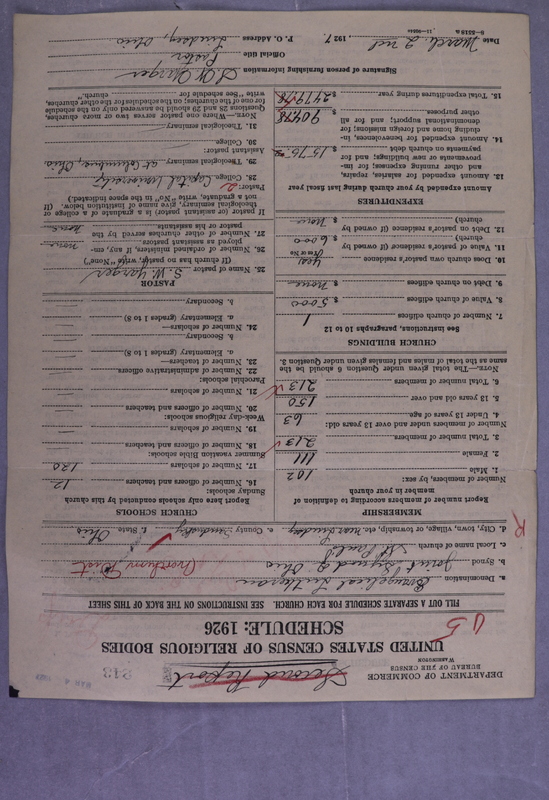 DEPARTMENT OF COMMERCE
BUREAU OF THE CENSUS
WASHINGTON
Second Report
243
MAR 4 1927
UNITED STATES CENSUS OF RELIGIOUS BODIES
SCHEDULE: 1926
FILL OUT A SEPARATE SCHEDULE FOR EACH CHURCH. SEE INSTRUCTIONS ON THE BACK OF THIS SHEET
a. Denomination Evangelical Lutheran
b. Synod Joint Synod of Ohio
c. Local name of church St Paul's
d. City, town, village, or township, etc. near Lindsey e. County Sandusky f. State Ohio
MEMBERSHIP
Report number of members according to definition of member in your church
Number of members, by sex:
1. Male 102
2. Female 111
3. Total number of members 213
Number of members under and over 13 years old:
4. Under 13 years of age 63
5. 13 years old and over 150
6. Total number of members 213
NOTE.—The total given under Question 6 should be the same as the total of males and females given under Question 3.
CHURCH BUILDINGS
See instructions, paragraphs 10 to 12
7. Number of church edifices 1
8. Value of church edifices $ 5000
9. Debt on church edifices $ none
10. Does church own pastor's residence yes
(Yes or No)
11. Value of pastor's residence (if owned by church) $ 6000
12. Debt on pastor's residence (if owned by church) $ none
EXPENDITURES
Amount expended by your church during last fiscal year
13. Amount expended for salaries, repairs, and other running expenses; for improvements or new buildings; and for payments on church debt $ 1575
14. Amount expended for benevolences, including home and foreign missions; for denominational support; and for all other purposes $ 904.78
15. Total expenditures during year $ 2479.78
CHURCH SCHOOLS
Report here only schools conducted by this church
Sunday schools:
16. Number of officers and teachers 12
17. Number of scholars 120
Summer vacation Bible schools:
18. Number of officers and teachers
19. Number of scholars
Week-day religious schools:
20. Number of officers and teachers
21. Number of scholars
Parochial schools:
22. Number of administrative officers
23. Number of teachers—
a. Elementary (grades 1 to 8)
b. Secondary
24. Number of scholars—
a. Elementary (grades 1 to 8)
b. Secondary
PASTOR
25. Name of pastor S. W. Yarger
(If church has no pastor, write "None")
26. Number of ordained ministers, if any, employed as assistant pastors none
27. Number of other churches served by the pastor or his assistants none
If pastor (or assistant pastor) is a graduate of a college or theological seminary, give name of institution below. (If not a graduate, write "No" in the space indicated.)
Pastor: 2
28. College Capital University
29. Theological seminary at Columbus, Ohio
Assistant pastor:
30. College
31. Theological seminary
NOTE.—Where one pastor serves two or more churches, Questions 28 and 29 should be answered only on the schedule for one of the churches; on the schedule for the other churches, write "See schedule for church."
Signature of person furnishing information S. W. Yarger
Official title Pastor
P. O. Address Lindsey, Ohio
Date March 2nd, 1927.